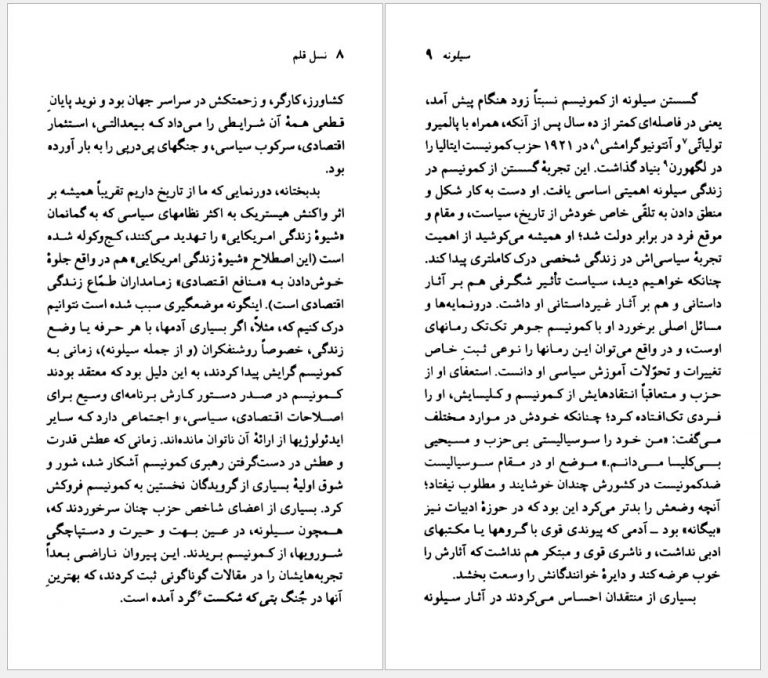 ۸ نسل قلم
کشاورز،کارگر، و زحمتکش در سراسر جهان بود و نوید پایان
قطعی همهٔ آن شرایطی را می‌داد کـه بیعدالتی، استثمار
اقتصادی، سرکوب سیاسی، و جنگهای پی‌درپی را به بار آورده
بود.
بدبختانه، دورنمایی که ما از تاریخ داریم تقریباً همیشه بر
اثر واکنش هیستریک به اکثر نظامهای سیاسی که به گمانمان
«شیوهٔ زندگی امریکایی» را تهدید می‌کنند، کج‌وکوله شده
است (این اصطلاح «شیوهٔ زندگی امریکایی» هم در واقع جلوهٔ
خوش‌دادن به «منافع اقتصادی» زمامداران طمّاع زندگی
اقتصادی است). اینگونه موضعگیری سبب شده است نتوانیم
درک کنیم که، مثلاً، اگر بسیاری آدمها، با هر حرفه یا وضع
زندگی، خصوصاً روشنفکران (و از جمله سیلونه)، زمانی به
کمونیسم گرایش پیدا کردند، به این دلیل بود که معتقد بودند
کمونیسم در صدر دستور کارش برنامه‌ای وسیع برای
اصلاحات اقتصادی، سیاسی، و اجتماعی دارد که سایر
ایدئولوژیها از ارائهٔ آن ناتوان مانده‌اند. زمانی که عطش قدرت
و عطش در دست‌گرفتن رهبری کمونیسم آشکار شد، شور و
شوق اولیهٔ بسیاری از گرویدگان نخستین به کمونیسم فروکش
کرد. بسیاری از اعضای شاخص حزب چنان سرخوردند، که
همچون سیلونه، در عین بهت و حیرت و دستپاچگی
شورویها، از کمونیسم بریدند. این پیروان ناراضی بعداً
تجربه‌هایشان را در مقالات گوناگونی ثبت کردند، که بهترین
آنها در جُنگ بتی‌که شکست۶ گرد آمده است.
سیلونه ۹
گسستن سیلونه از کمونیسم نسبتاً زود هنگام پیش آمد،
یعنی در فاصله‌ای کمتر از ده سال پس از آنکه، همراه با پالمیرو
تولیاتّی۷ و آنتونیوگرامشی۸، در ۱۹۲۱ حزب کمونیست ایتالیا را
در لگهورن۹ بنیاد گذاشت. این تجربهٔ گسستن از کمونیسم در
زندگی سیلونه اهمیتی اساسی یافت. او دست به کار شکل و
منطق دادن به تلقّی خاص خودش از تاریخ، سیاست، و مقام و
موقع فرد در برابر دولت شد؛ او همیشه می‌کوشید از اهمیت
تجربهٔ سیاسی‌اش در زندگی شخصی درک کاملتری پیدا کند.
چنانکه خواهیم دید، سیاست تأثیر شگرفی هم بر آثار
داستانی و هم بر آثار غیرداستانی او داشت. درونمایه‌ها و
مسائل اصلی برخورد او با کمونیسم جوهر تک‌تک رمانهای
اوست، و در واقع می‌توان این رمانها را نوعی ثبتِ خاص
تغییرات و تحوّلات آموزش سیاسی او دانست. استعفای او از
حزب و متعاقباً انتقادهایش از کمونیسم و کلیسایش، او را
فردی تک‌افتاده کرد؛ چنانکه خودش در موارد مختلف
می‌گفت: «من خود را سوسیالیستی بی‌حزب و مسیحیی
بی‌کلیسا می‌دانم.» موضع او در مقام سوسیالیست
ضدکمونیست در کشورش چندان خوشایند و مطلوب نیفتاد؛
آنچه وضعش را بدتر می‌کرد این بود که در حوزهٔ ادبیات نیز
«بیگانه» بود ــ آدمی که پیوندی قوی با گروهها یا مکتبهای
ادبی نداشت، و ناشری قوی و مبتکر هم نداشت که آثارش را
خوب عرضه کند و دایرهٔ خوانندگانش را وسعت بخشد.
بسیاری از منتقدان احساس می‌کردند در آثار سیلونه